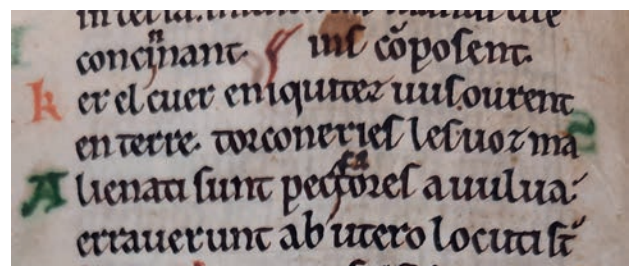 in terra.
concinnant. ins cõposent.
ker el cuer eniquitez uus.ourent
en terre. torconeries les uoz ma
Alienati sunt peccatores a uulua:
errauerunt ab utero locuti st̄